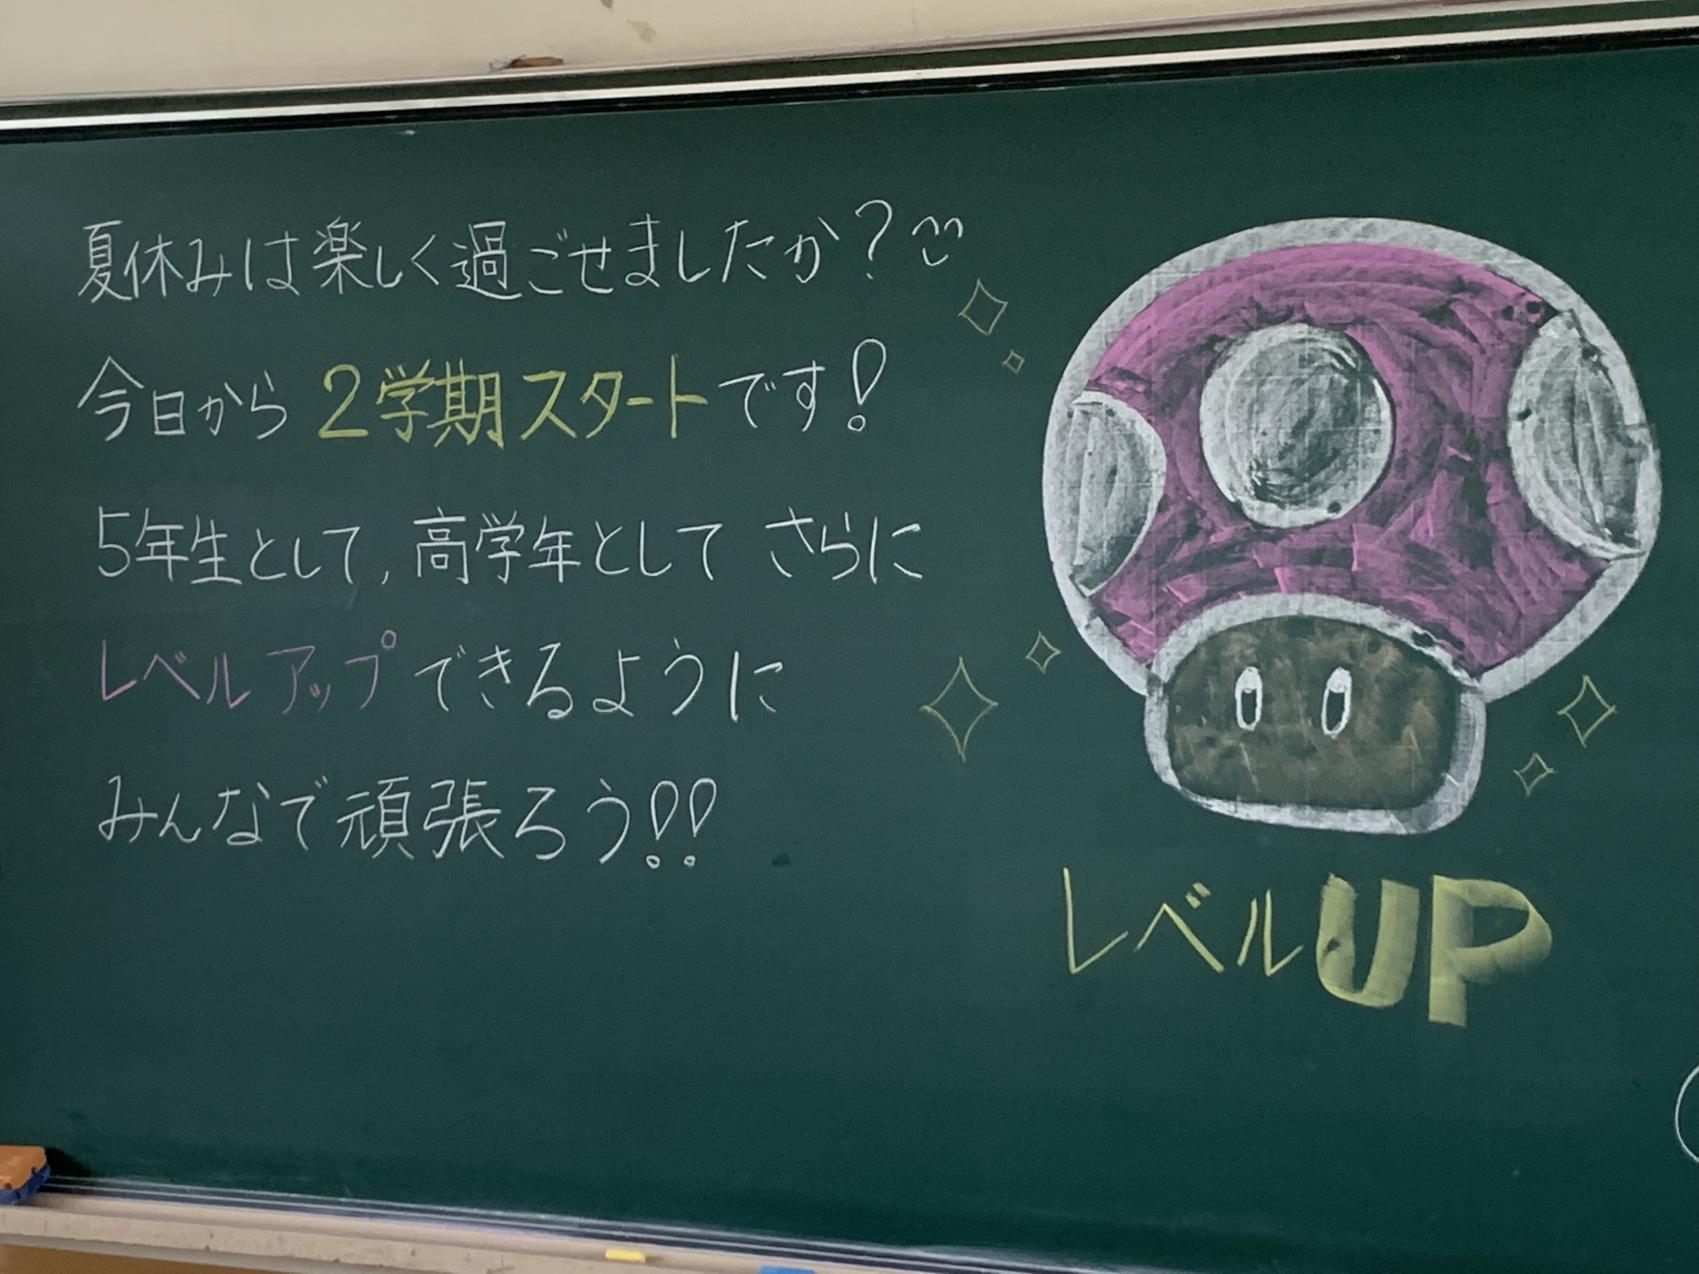 夏休みは楽しく過ごせましたか?
今日から2学期スタートです!
5年生として,高学年としてさらに
レベルアップできるように
みんなで頑張ろう!!
レベルUP